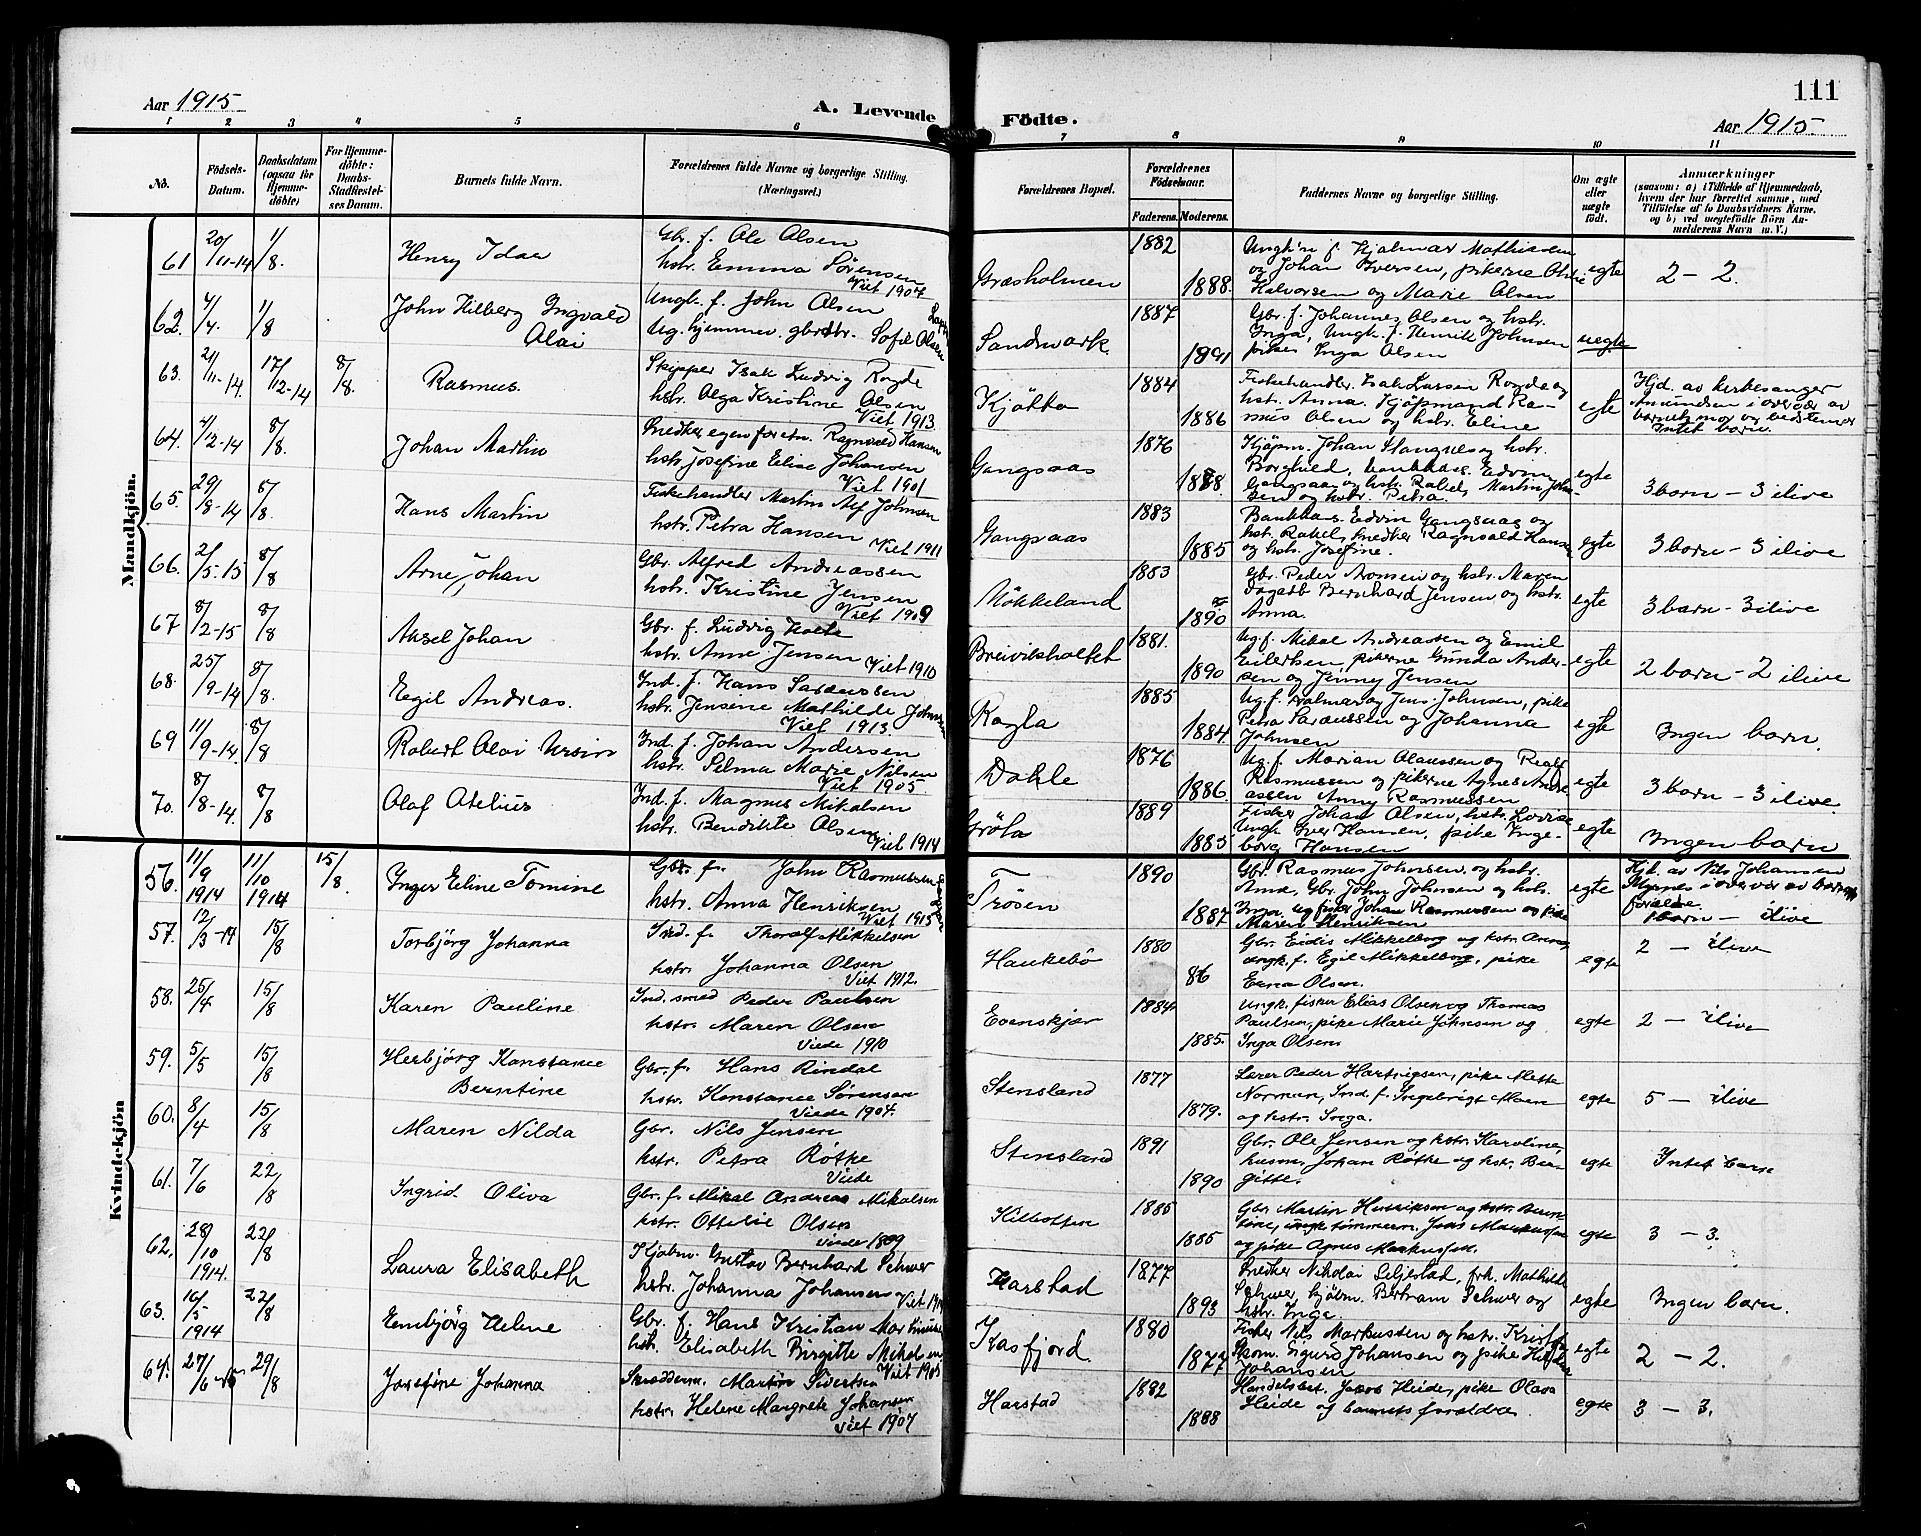 111
Aar 1915
A. Levende
Födte.
Aar 1915
1 2 3 4 5 6 7 8 9 10 11
No.
Födsels-
Datum.
Daabsdatum
(ogsaa for
Hjemme-
döbte)
For Hjemme-
döbte:
Daabs-
Stadfæstel-
ses Datum.
Barnets fulde Navn.
Forældrenes fulde Navne og borgerlige Stilling.
(Næringsvei.)
Forældrenes Bopæl.
Forældrenes
Födselsaar.
Faderens. Moderens.
Faddernes Navne og borgerlige Stilling.
Om ægte
eller
uægte
födt.
Anmærkninger
(saasom: a) i Tilfælde af Hjemmedaab,
hvem der har forrettet samme, med
Tilföielse af to Daabsvidners Navne,
og b) ved uægtefödte Börn An-
melderens Navn m. V.)
Mandkjön.
61 20/11-14 1/8. Henry Idar
Gbr. f. Ole Olsen
hstr. Emma Sørensen
Viet 1904
Græsholmen 1882 1888.
Ungk'ne f. Hjalmar Mathisen
og Johan Iversen, pikerne
Halvorsen og Marie Olsen
egte 2 - 2.
62. 4/4. 1/8 John Hilberg Ingvald
Olai
Ungk. f. John Olsen
Ug. hjemmev. gbrdtr. Sofie Olsen
Sandmark 1887 1891
Gbr. f. Johannes Olsen og hstr.
Inga, Ungk. f. Henrik Johnsen
pike Inga Olsen
uegte
63. 2/11-14. 17/12-14 8/8. Rasmus.
Skipper Isak Ludvig Rogde
hstr. Olga Kristine Olsen
Viet 1913.
Kjøtta 1884 1886
Fiskehandler. Isak Larsen Rogde og
hstr. Anna. Kjøpmand Ras-
mus Olsen og hstr. Eline
egte
Hjd. av kirkesanger
Amundsen i overvær av
barnets mor og bedstemor
Intet barn.
64. 4/12-14 8/8. Johan Martin
Snedker egen forretn. Ragnvald Hansen
hstr. Josefine Elise Johansen
Viet 1901
Gangsaas 1876 1878
Kjøpm. Johan Hangnes og hstr.
Borghild, bankkass. Edvin
Gangsaas og hstr. Rakel, Martin John-
sen og hstr. Petra.
egte 3 barn - 3 ilive
65. 29/8-14 8/8. Hans Martin
Fiskehandler Martin Alf Johnsen
hstr. Petra Hansen
Viet 1911
Gangsaas 1883 1885
Bankkass. Edvin Gangsaas og
hst. Rakel, snedker Ragnvald Hansen
og hstr. Josefine.
egte 3 barn - 3 ilive
66. 2/5.15 8/8 Arne Johan
Gbr. Alfred Andreassen
hstr. Kristine Jensen
Viet 1909
Møkkeland 1883 1890
Gbr. Peder Aronsen og hstr. Maren
Dagarb Bernhard Jensen og hstr.
Anna.
egte 3 barn - 3 ilive
67 8/2-15 8/8 Aksel Johan
Gbr. f. Ludvig Holte
hstr. Anne Jensen
Viet 1910
Breivikholtet 1881. 1890
Ug. f. Mikal Andreassen og Emil
Eilertsen, pikerne Gunda Ander-
sen og Jenny Jensen
egte 2 barn - 2 ilive
68. 25/9-14 8/8. Eegil Andreas.
Ind. f. Hans Rasmussen
hstr. Jensine Mathilde Johnsen
Viet 1913
Rogla 1885 1884
Ug. f. Halmar og Jens Johnsen, pike
Petra Rasmussen og Johanna
Johnsen
egte Ingen barn.
69 11/9-14 8/8 Robert Olai Ursin
Ind. f. Johan Andersen
hstr. Selma Marie Nilsen
Viet 1905
Dahle 1876 1886.
Ug. f. Marian Olaussen og
Rasmussen og pikerne Agnes Andre-
assen Anny Rasmussen
egte 3 barn - 3 ilive.
70. 8/8-14. 8/8 Olaf Atelius
Ind. f. Magnus Mikalsen
hstr. Bendikte Olsen
Viet 1914
Grøla 1889 1885
Fisker Johan Olsen, hstr. Lovise
Ungk. Iver Hansen, pike Inge-
borg Hansen
egte Ingen barn
Kvindekjön
56. 11/9 1914 11/10 1914 15/8. Inger Eline Tomine
Gbr. f. John Rasmussen
hstr. Anna Henriksen
Viet 1913
Trøsen 1890 1887
Gbr. Rasmus Johnsen, og hstr.
Anna, Gbr. John Johnsen og hstr.
Inga. Ug. fisker Johan Rasmussen og pike
Maren Henriksen
egte
Hjd. av Nils Johansen
Myrnes i overvær av barnets
forældre
1 barn - ilive
57. 12/3-14 15/8 Torbjörg Johanna
Ind. f. Thoralf Mikkelsen
hstr. Johanna Olsen
Viet 1912.
Haukebø 1880 86
Gbr. Eidis Mikkelborg og hstr. Anna
ungk. f. Egil Mikkelborg, pike
Erna Olsen.
egte 2 - ilive
58. 25/4 15/8 Karen Pauline
Ind. smed Peder Paulsen
hstr. Maren Olsen
Viede 1910
Evenskjær 1884 1885.
Ungk. fisker Elias Olsen og Thomas
Paulsen, pike Marie Johnsen og
Inga Olsen
egte 2 - ilive
59. 5/5 15/8 Herbjörg Konstance
Berntine
Gbr. f. Hans Rindal
hstr. Konstance Sørensen
Viede 1904.
Stensland 1877 1879.
Lærer Peder Hartvigsen, pike Mette
Norman, Ind. f. Ingebrigt Moen
og hstr. Inga.
egte 5 - ilive
60. 8/4 15/8 Maren Nilda
Gbr. Nils Jensen
hstr. Petra Røtke
Viede
Stensland 1891 1890
Gbr. Ole Jensen og hstr. Karoline,
husm. Johan Røtke og hstr. Ber-
gitte.
egte Intet barn
61. 7/6 22/8 Ingrid Oliva
Gbr. f. Mikal Andreas Mikalsen
hstr. Ottelie Olsen
Viede 1809
Kilbotten 1885 1885
Gbr. Martin Henriksen og hstr. Bern-
tine, ungk tømmerm. Jens Markussen
og pike Agnes Markussen.
egte 3 - 3.
62. 28/10 1914. 22/8 Laura Elisabeth
Kjøbm. Gustav Bernhard Schwer
hstr. Johanna Johansen
Harstad 1877 1893
Snedker Nikolai Seljestad, frk. Mathilde
Schwer, kjøbm. Bertram Schwer og
hstr. Inga.
egte Ingen barn.
63. 16/5 1914 22/8 Embjörg Helene
Gbr. f. Hans Kristian Martinussen
hstr. Elisabeth Birgitte Mikalsen
Viet 1905
Kasfjord 1880 1877
Fisker Nils Markussen og hstr.
Skom. Sigurd Johansen og pike
Johansen
egte 2 - 2.
64. 27/6 29/8 Josefine Johanna
Skræddrm. Martin Sivertsen
hstr. Helene Margrete Johansen
Viet 1907
Harstad 1882 1888
Handelsbet. Jacob Heide, pike Olava
Heide og barnets forældre
egte 3 - 3.